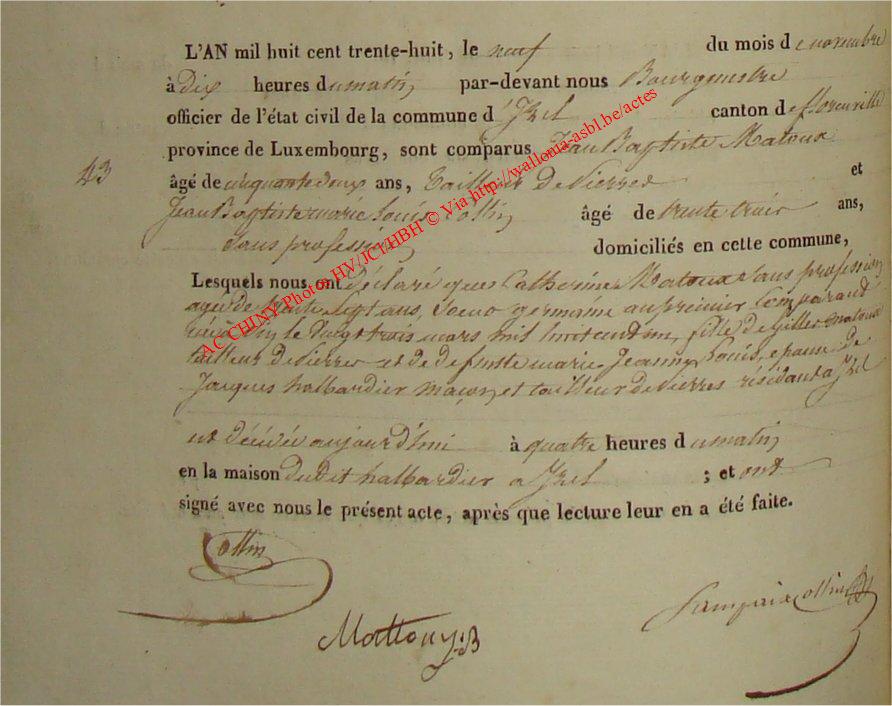 L'AN mil huit cent trente-huit, le neuf du mois de novembre
à Dix heures du matin par-devant nous Bourgmestre
officier de l'état civil de la commune d'Izel canton de florenville
province de Luxembourg, sont comparus Jean Baptiste Matoux
43
âgé de cinquante deux ans, Tailleur De Pierres et
Jean Baptiste marie Louis Collin âgé de trente trois ans,
Sans profession domiciliés en cette commune,
Lesquels nous ont Déclaré que Catherine Matoux Sans profession
agée de trente Sept ans, Soeur germaine au premier Comparant
née à le Vingt trois mars mil huit cent un, fille de Gilles Matoux
tailleur de Pierres et de defunte marie Jeanne Louis, epouse de
Jacques halbardier maçon et tailleur de Pierres résidant à Izel
est Décédée aujourd'hui à quatre heures du matin
en la maison du Dit halbardier a Izel ; et ont
signé avec nous le présent acte, après que lecture leur en a été faite.
Collin
Lampaix Collin
Mattoux JB
AC CHINY Photos HV/JCI/HBH © Via http://wallonia-asbl.be/actes